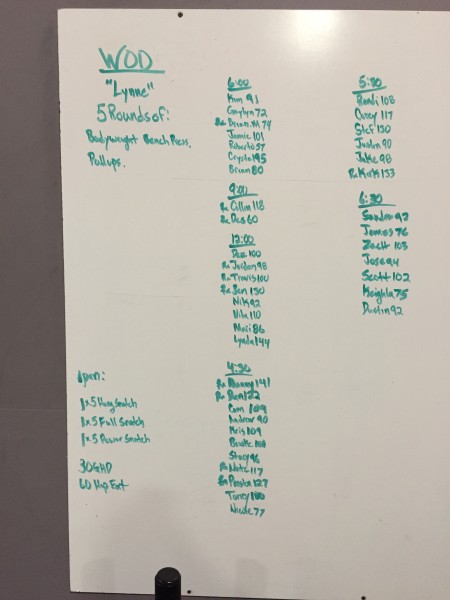 WOD
"Lynne"
5 Rounds of:
Bodyweight Bench Press.
Pullups.
1pm:
1x5 Hang Snatch
1x5 Full Snatch
1x5 Power Snatch
30 GHD
60 Hip Ext
6:00
Kim 91
72
Rx Brian M 74
Jamie 101
Roberto 57
Crystal 95
Brian 80
9:00
Rx Collin 118
Rx Des 60
12:00
Dee 100
Rx Jordan 98
Rx Travis 100
Rx Ben 130
Nik 92
Nila 110
Mari 86
Lynda 144
4:30
Rx Manny 141
Rx Dan 122
Cam 109
Andrew 90
Kris 109
Brooke 108
Stacy 96
Rx Nate 117
Rx Preston 127
Torey 180
Nicole 77
5:30
Randi 108
Casey 117
Stef 130
Justin 90
Jake 98
Rx Kirk 133
6:30
Sandra 92
James 76
Zach 103
Jose 94
Scott 102
Keighla 75
Dustin 92